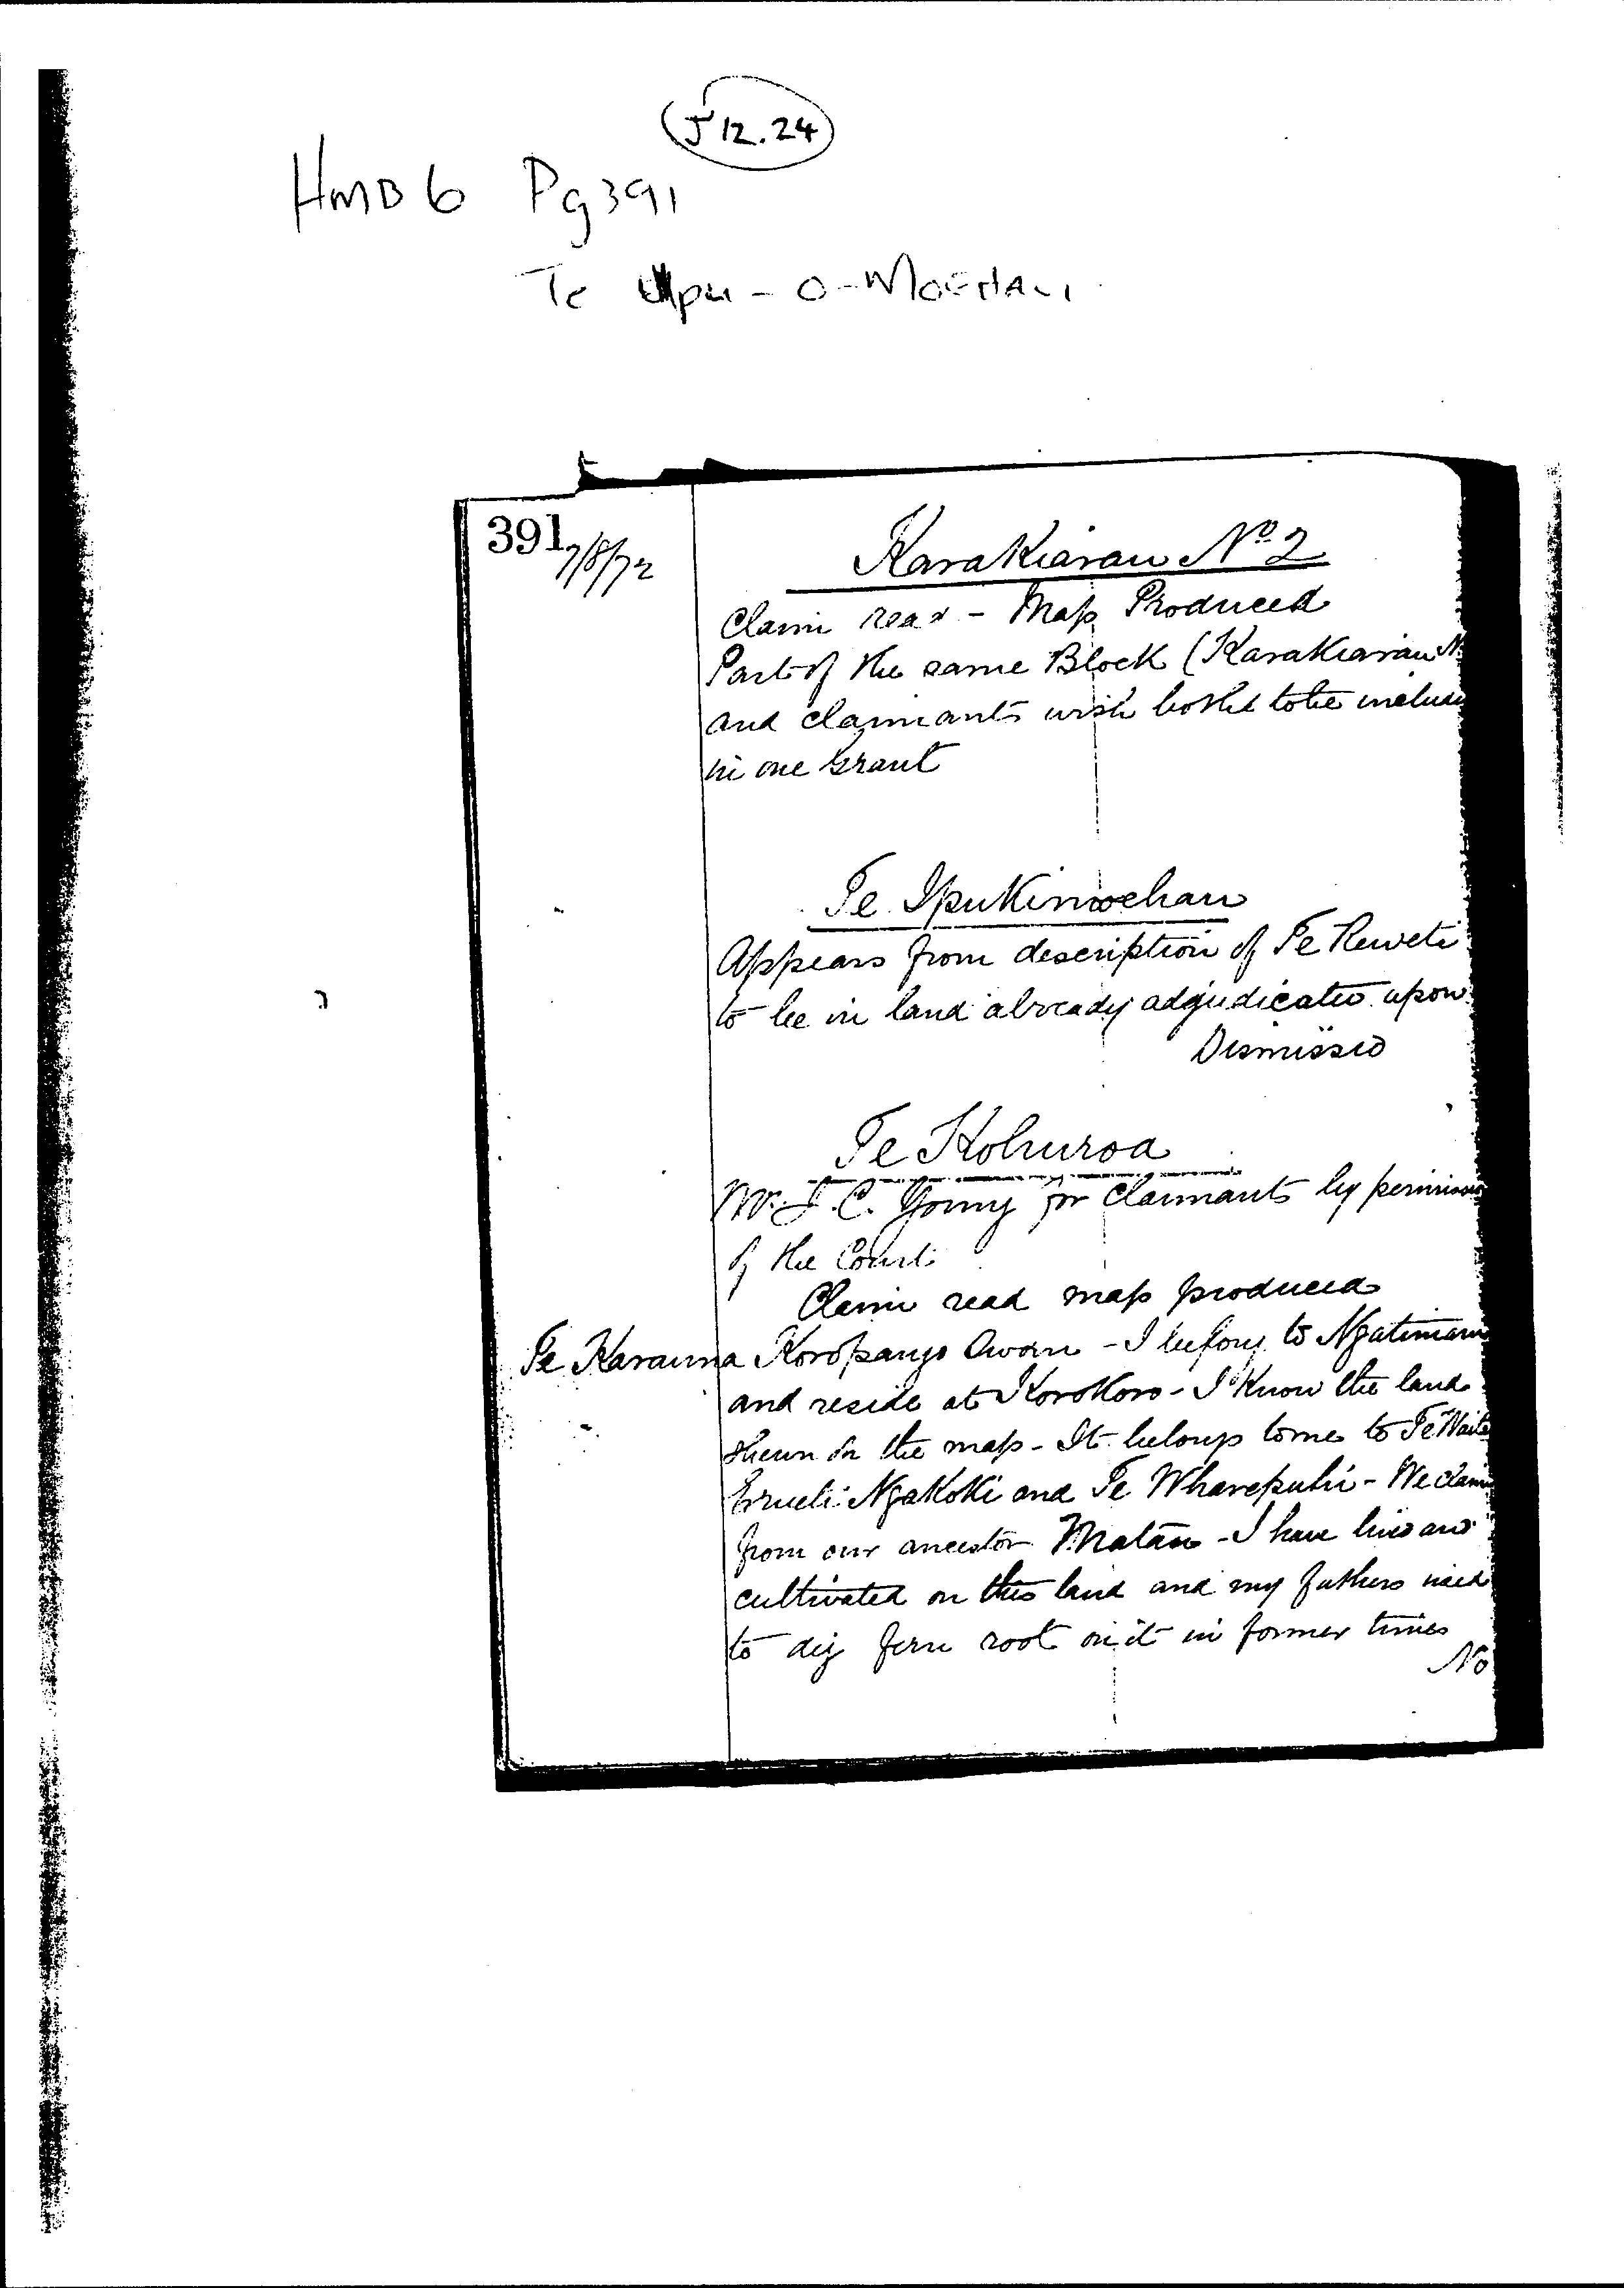 J 12.24
HMB 6 Pg 391
Te Ipu - o - Moehau
391
7/8/72
Karakiarau No 2
Claim read - Map Produced
Part of the same Block (Karakiarau N
and claimants wish both to be include
in one Grant
Te Ipukimoehau
Appears from description of Te Reweti
to be in land already adjudicated upon
Dismissed
Te Kohuroa
Mr. J. C. Young for Claimants by permission
of the Court
Claim read map produced
Te Karauna Koropango Sworn - I belong to Ngatimaru
and reside at Korokoro - I know the land
shewn on the map - It belongs to me to Te Waite
Erueti Ngakoki and Te Wharepuhi - We claim
from our ancestor Matau - I have lived and
cultivated on this land and my fathers used
to dig fern root on it in former times
No